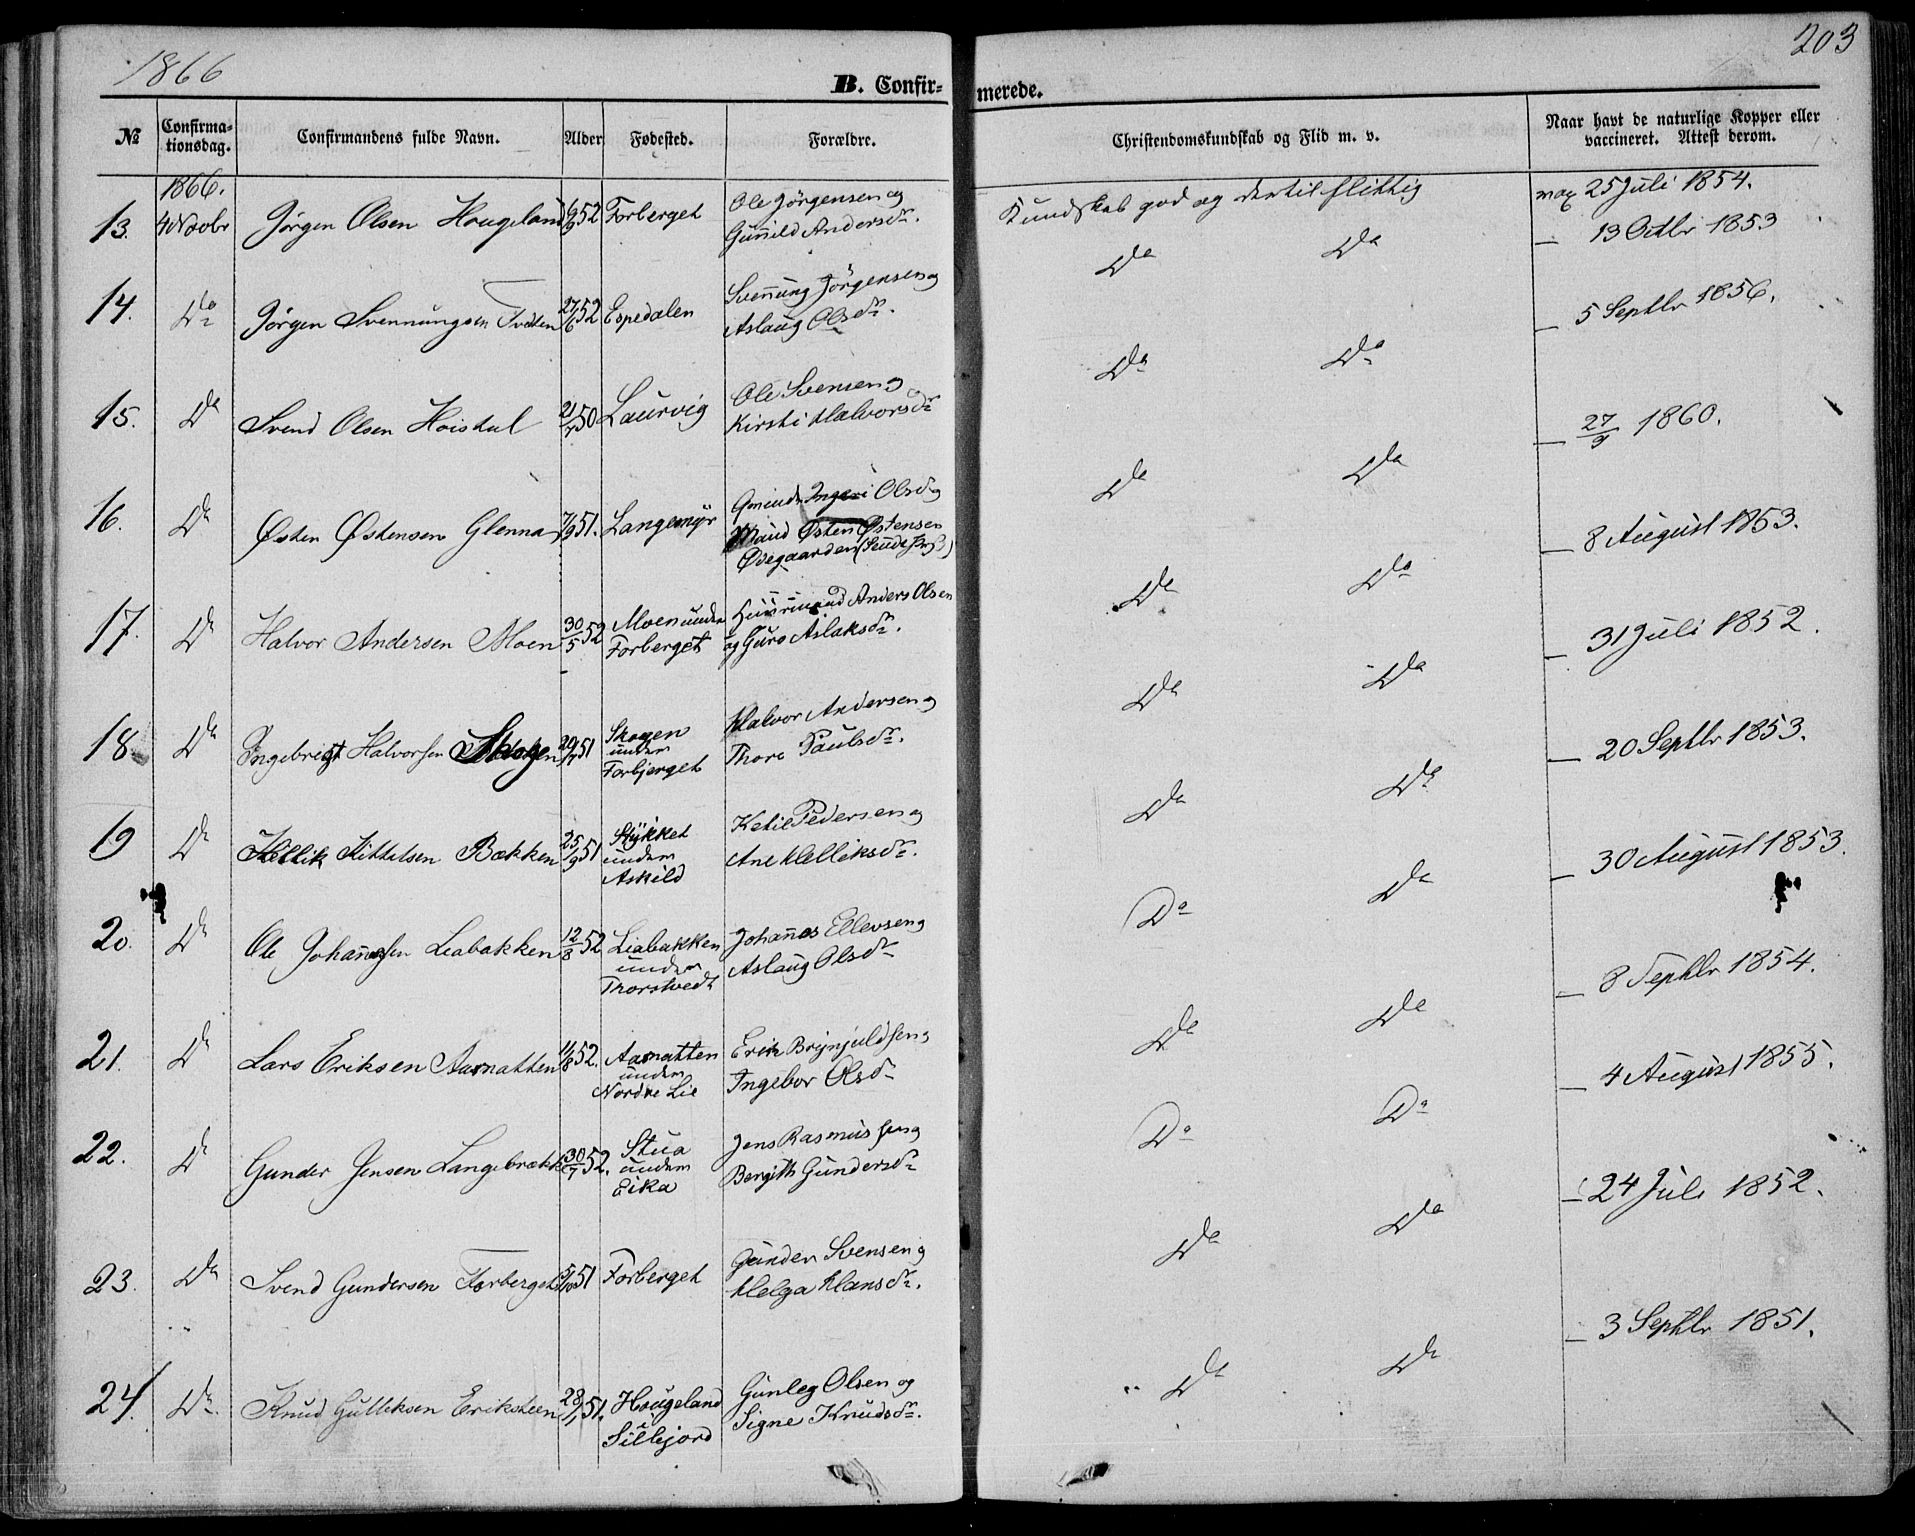 1866
203
B. Confirmerede.
№ | Confirmationsdag. | Confirmandens fulde Navn. | Alder | Fødested. | Forældre. | Christendomskundskab og Flid m. v. | Naar havt de naturlige Kopper eller vaccineret. Attest derom.
1866.
25 Juli 1854.
13. 4 Novbr Jørgen Olsen Haugeland 52 Forberget Ole Jörgensen og Kundskab god og dertil flittig
Gunild Andersdr.
Do Do — 13 Octbr 1853
14. Do Jørgen Svennungsen Tveten 27/6 52 Espedalen Svennung Jörgensen og
Aslaug Olsdr.
Do Do — 5 Septbr 1856.
15. Do Svend Olsen Hoiskul 50 Laurvig Ole Svensen og
Kirsti Halvorsdr
Do Do — 27/9 1860.
16. Do Østen Østensen Glenna 7/9 51. Langemyr Ingeri Olsd og
Østen Østensen
Ødegaarden
Do Do — 8 August 1853.
17. Do Halvor Andersen Moen 30/5 52 Moen under Forberget Huusmand Anders Olsen
og Guro Aslaksdr.
Do Do — 31 Juli 1852.
18 Do Ingebrigt Halvorsen Skogen 51 Skogen under Forbjerget Halvor Andersen og
Thore Paulsdr.
Do Do — 20 Septbr 1853.
19 Do Hellik Kittelsen Bækken 25/9 51 Stykket under Askild Ketil Pedersen og
Ane Helliksdr.
Do Do — 30 August 1853.
20. Do Ole Johannesen Leabakken 12/8 52 Liabakken under Thorstvedt Johannes Ellevsen og
Aslaug Olsdr
Do Do — 8 Septbr 1854.
21. Do Lars Eriksen Aasnatten 11/8 52. Aasnatten under Nordre Lie Erik Brynjuldsen og
Ingebor Olsdr
Do Do — 4 August 1855.
22. Do Gunder Jensen Langebræk 30/7 52. Stua under Eika Jens Rasmussen og
Bergith Gundersdr
Do Do — 24 Juli 1852.
23. Do Svend Gundersen Forberget 5/10 51 Forberget Gunder Svensen og
Helga Hansdr.
Do Do — 3 Septbr 1851.
24. Do Knud Gulleksen Eriksteen 28/1 51. Haugeland i Sillejord Gunleg Olsen og
Signe Knudsdr.